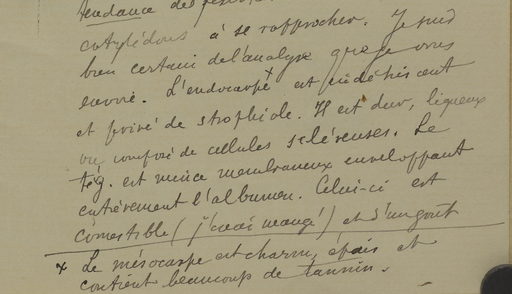 tendance des
cotylédons à se rapprocher. Je suis
bien certain de l'analyse que je vous
envoie. L'endocarpe x est indéhiscent
et privé de strophiole. Il est dur, ligneux
ou composé de cellules scléreuses. Le
tég. est mince membraneux enveloppant
entièrement l'albumen. Celui-ci est
comestible (j'en ai mangé) et d'un goût
x Le mésocarpe est charnu, épais et
contient beaucoup de tannin.